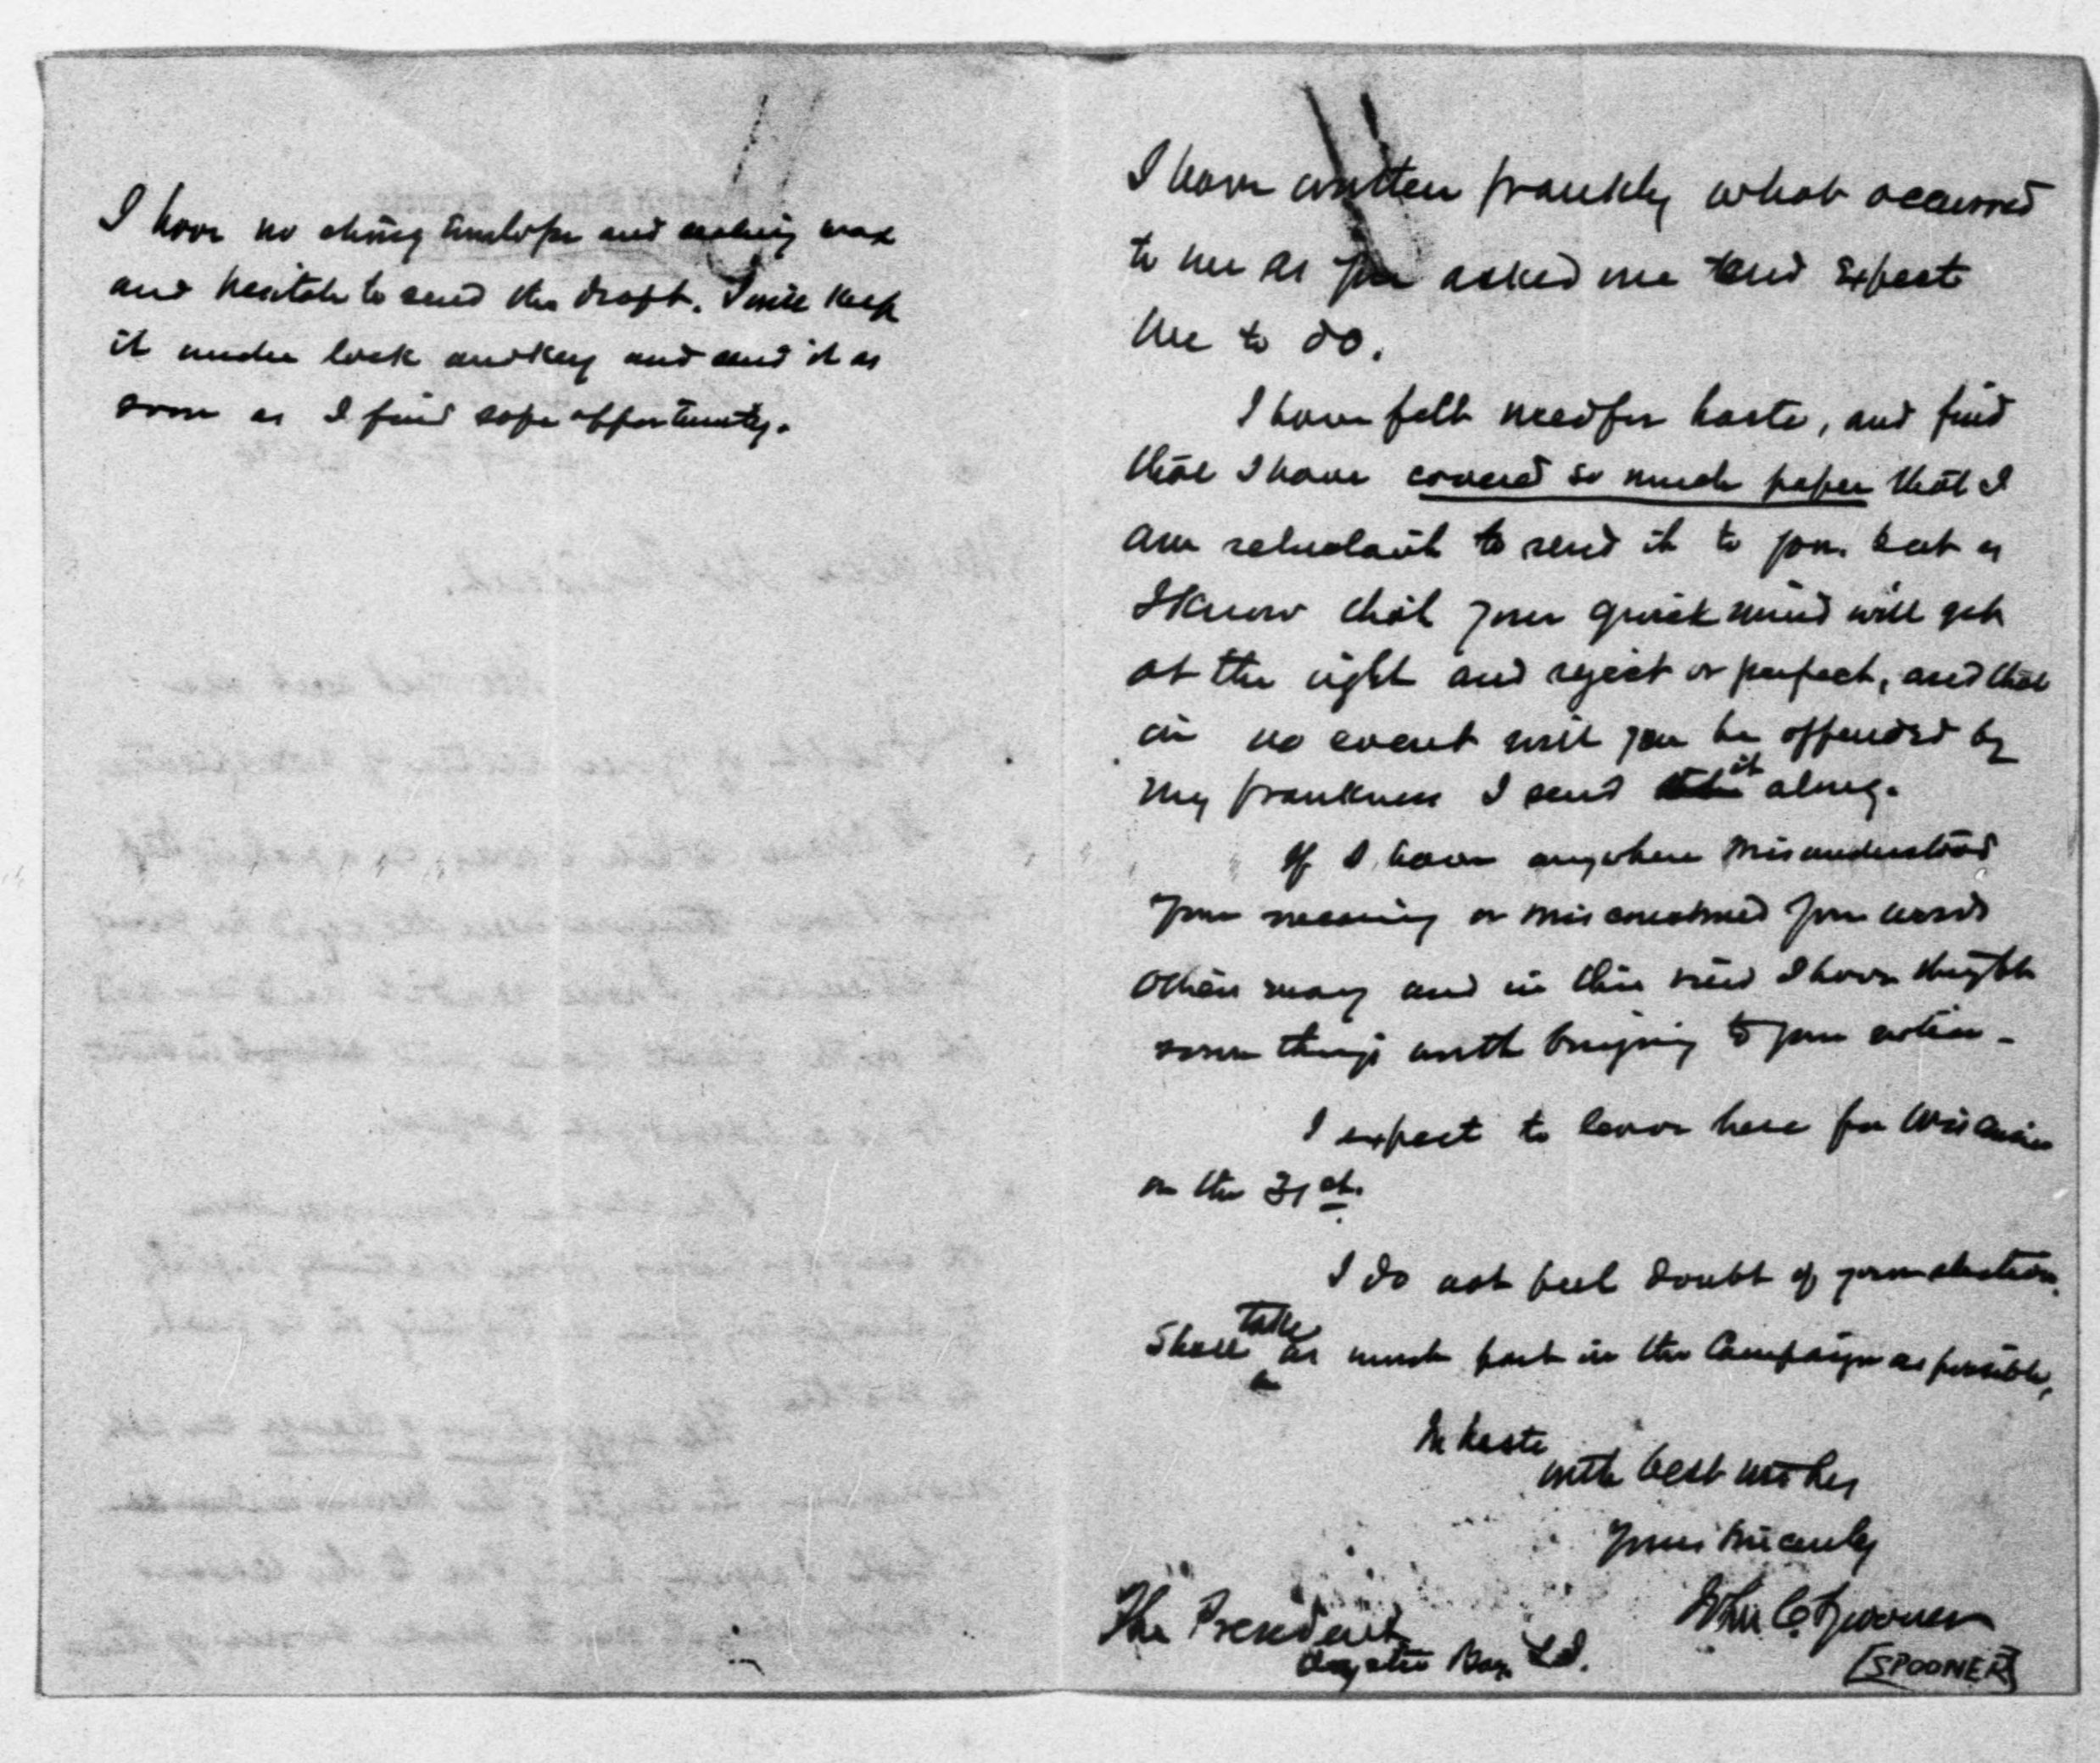 I have no strong envelope and sealing wax
and hesitate to send the draft. I will keep
it under lock and key and send it as
soon as I find safe opportunity.
I have written frankly what occurred
to me as you asked me and expect
me to do.
I have felt need for haste, and find
that I have covered so much paper that I
am reluctant to send it to you. but as
I know that your quick mind will get
at the right and reject or perfect, and that
in no event will you be offended by
my frankness I send it along.
If I have anywhere misunderstood
your meaning or misconstrued your words
others may and in this view I have thought
some things worth bringing to your notice -
I expect to leave here for Wisconsin
on the 31st.
I do not feel doubt of your election.
Shall take as much part in the Campaign as possible,
In haste
with best wishes
Yours sincerely
John C. Spooner
[SPOONER]
The President
Oyster Bay, L.I.